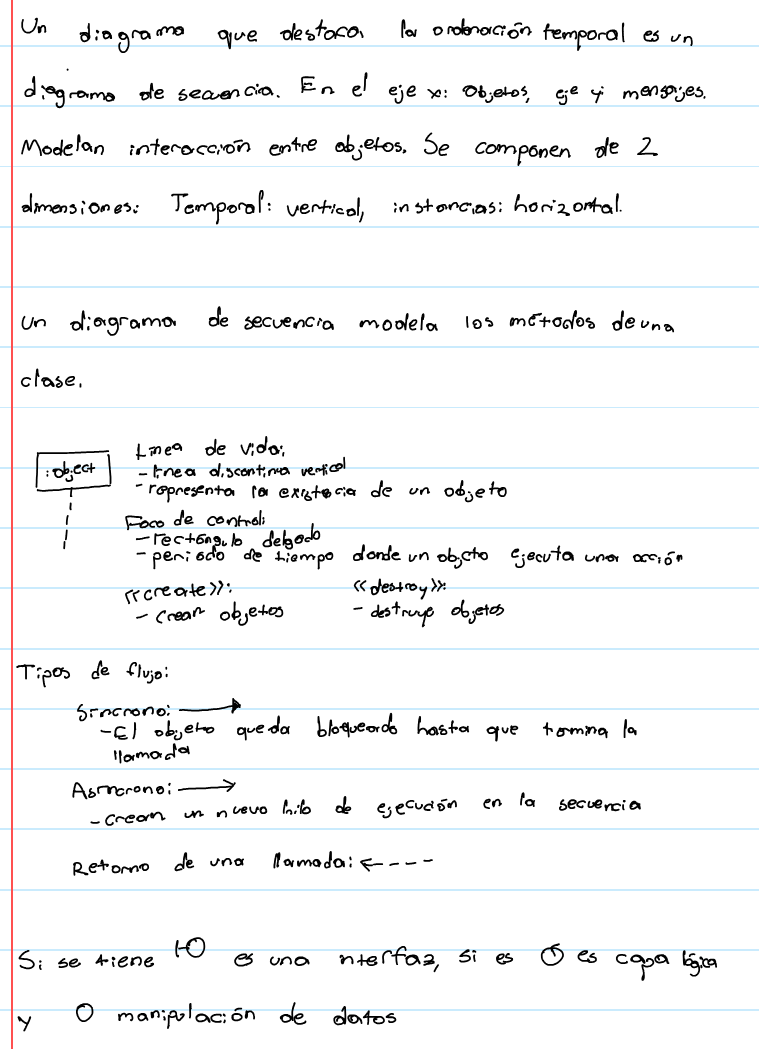 Un diagrama que destaca la ordenación temporal es un
diagrama de secuencia. En el eje x: Objetos, eje y: mensajes.
Modelan interacción entre objetos. Se componen de 2
dimensiones: Temporal: vertical, instancias: horizontal.
Un diagrama de secuencia modela los métodos de una
clase.
:object
Linea de vida:
- linea discontinua vertical
- representa la existecia de un objeto
Foco de control:
- rectángulo delgado
- periodo de tiempo donde un objeto ejecuta una acción
<<create>>: <<destroy>>:
- Crean objetos - destruye objetos
Tipos de flujo:
Síncrono: →
- El objeto queda bloqueado hasta que termina la
llamada
Asíncrono: →
- Crean un nuevo hilo de ejecución en la secuencia
Retorno de una llamada: ←---
Si se tiene es una interfaz, si es es capa lógica
y O manipulación de datos